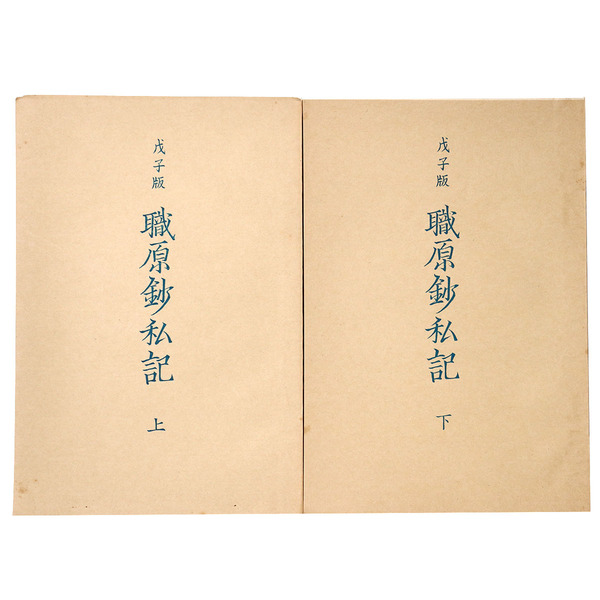 戊子版
職原鈔私記
上
戊子版
職原鈔私記
下